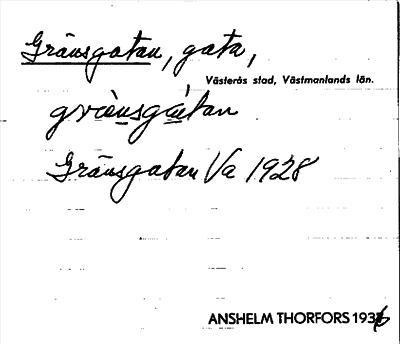 Gränsgatan, gata,
Västerås stad, Västmanlands län.
grènsgátan
Gränsgatan Va 1928
ANSHELM THORFORS 1936